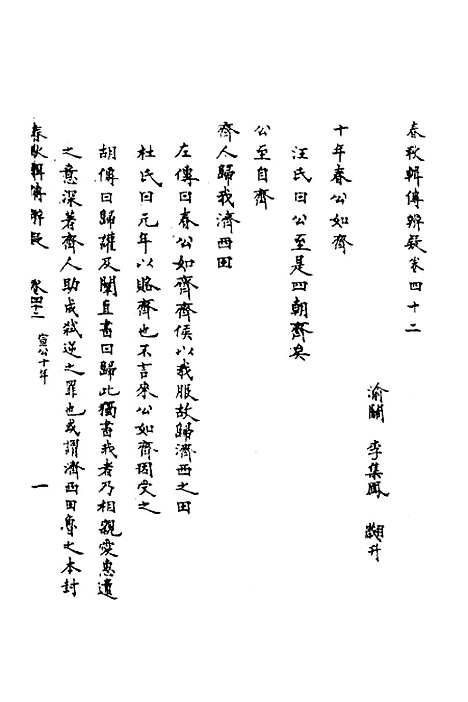 春秋輯傳辨疑卷四十二
渝關 李集鳳 翽升
十年春公如齊
汪氏曰公至是四朝齊矣
公至自齊
齊人歸我濟西田
左傳曰春公如齊齊侯以我服故歸濟西之田
杜氏曰元年以賂齊也不言來公如齊因受之
胡傳曰歸讙及闡直書曰歸此獨書我者乃相親愛惠遺
之意深著齊人助成弒逆之罪也或謂濟西田魯之本封
春秋輯傳辨疑 卷四十二 宣公十年 一